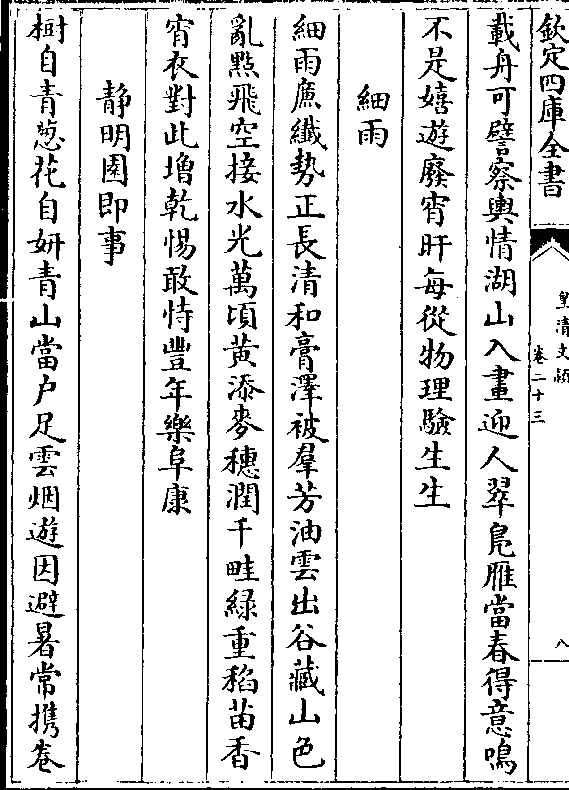 欽定四庫全書
皇清文穎
卷二十三
八
載舟可譬察輿情湖山入畫迎人翠鳬雁當春得意鳴
不是嬉遊廢宵旰每從物理驗生生
細雨
細雨廉纖勢正長清和膏澤被羣芳油雲出谷藏山色
亂㸃飛空接水光萬頃黃添麥穗潤千畦綠重稻苗香
宵衣對此增乾惕敢恃豐年樂阜康
静明園即事
樹自青葱花自妍青山當户足雲烟遊因避暑常攜卷